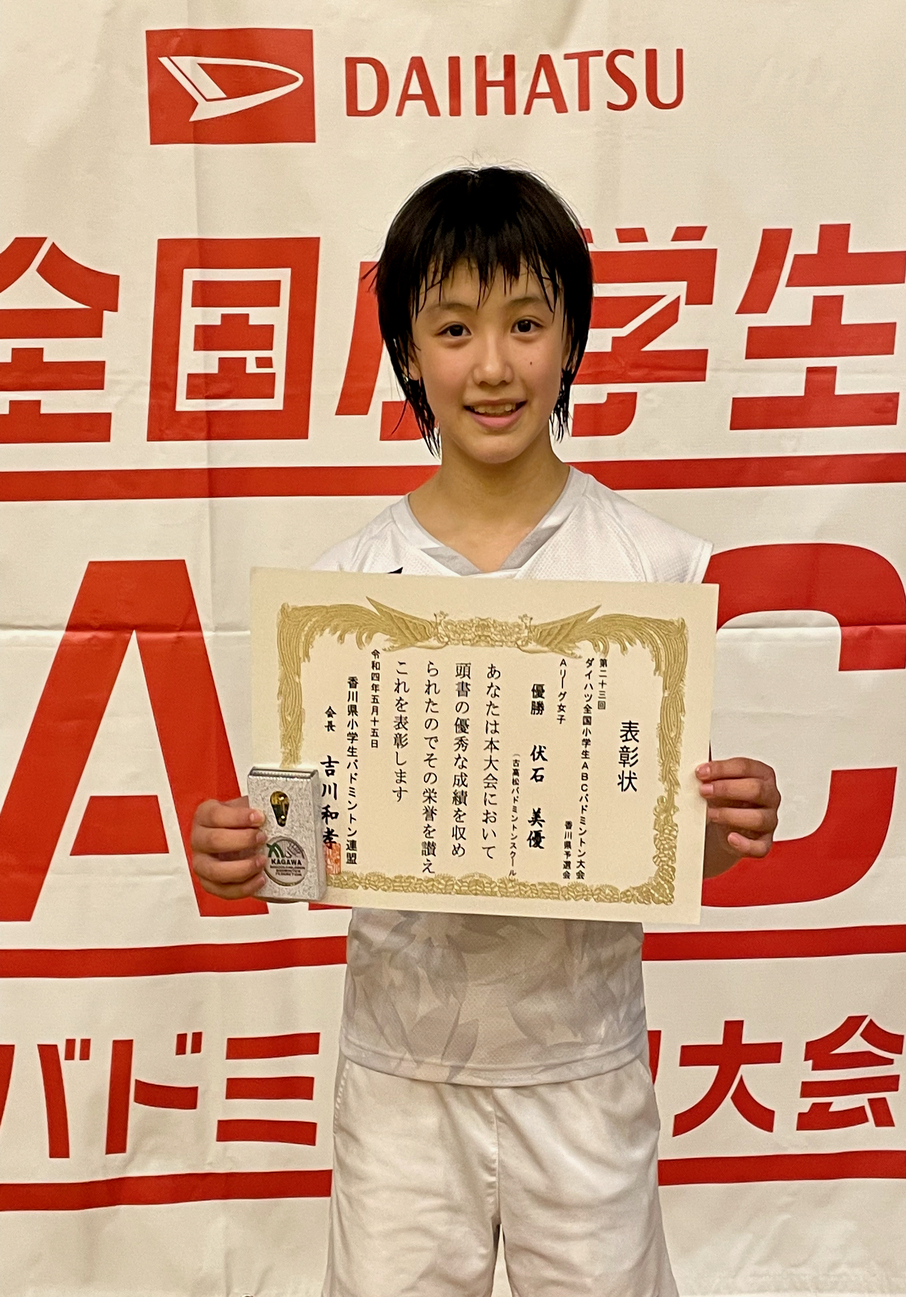 DAIHATSU
全国小学生
ABC
バドミントン大会
表彰状
第二十三回
ダイハツ全国小学生ABCバドミントン大会
香川県予選会
Aリーグ女子
優勝 伏石 美優
(古高松バドミントンスクール)
あなたは本大会において
頭書の優秀な成績を収め
られたのでその栄誉を讃え
これを表彰します
令和四年五月十五日
香川県小学生バドミントン連盟
会長 吉川和孝
KAGAWA